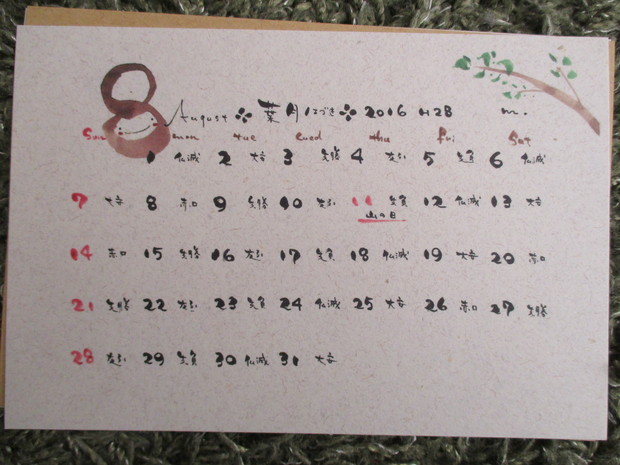 8 August 葉月はづき 2016 H28 m.
Sun mon tue wed thu fri Sat
1 仏滅 2 大安 3 先勝 4 友引 5 先負 6 仏滅
7 大安 8 赤口 9 先勝 10 友引 11 先負 12 仏滅 13 大安
山の日
14 赤口 15 先勝 16 友引 17 先負 18 仏滅 19 大安 20 赤口
21 先勝 22 友引 23 先負 24 仏滅 25 大安 26 赤口 27 先勝
28 友引 29 先負 30 仏滅 31 大安